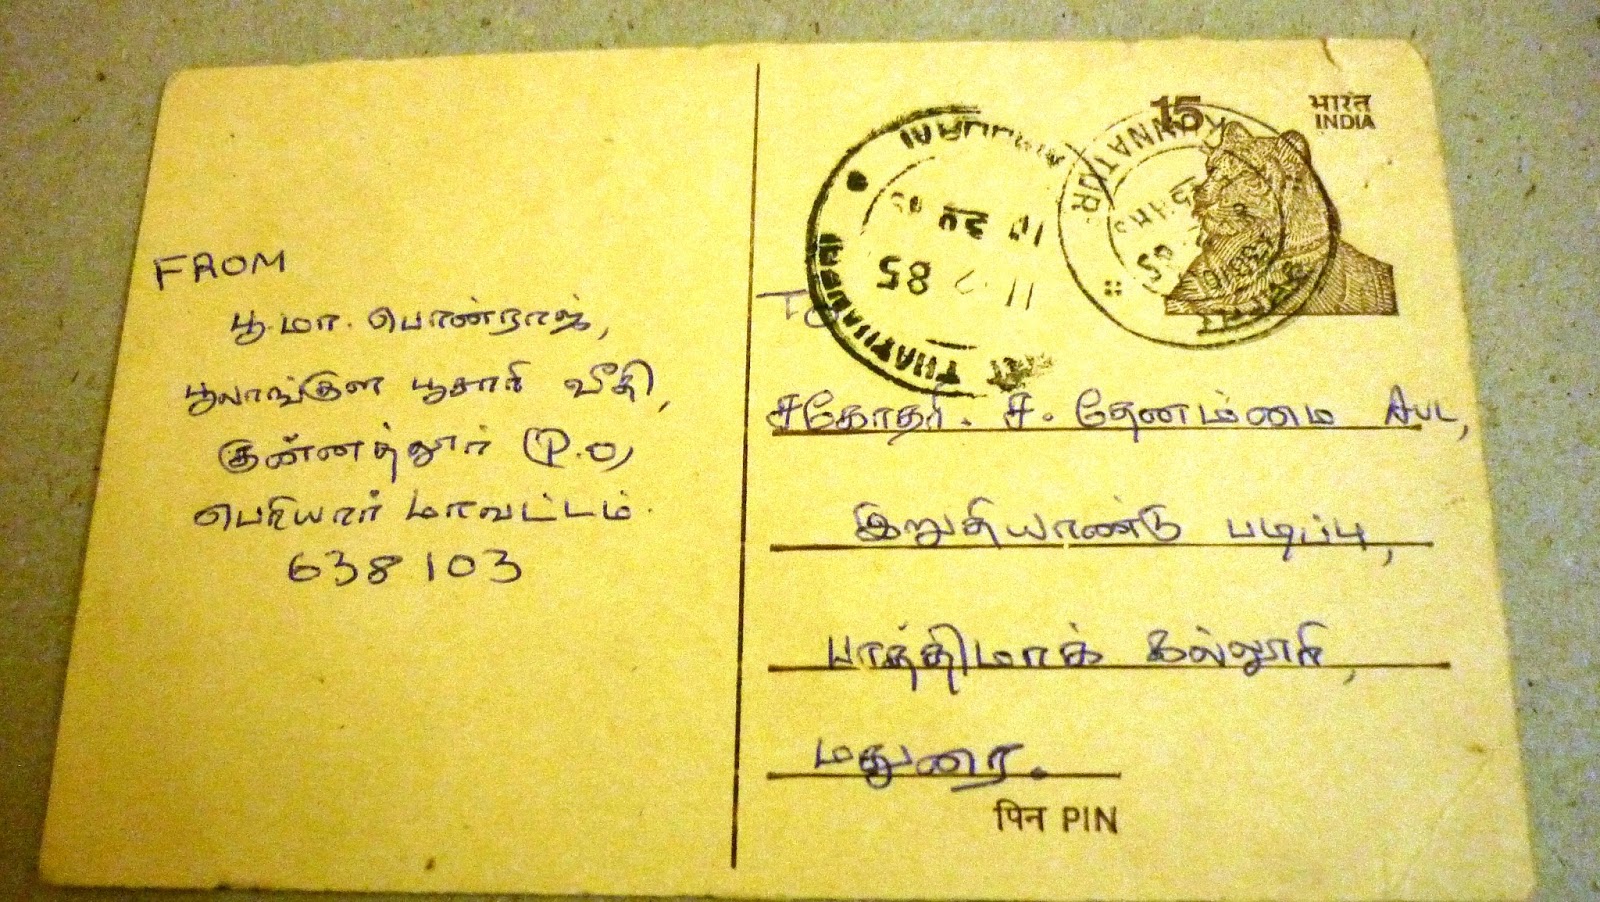 FROM
பூ.மா. பொன்ராஜ்,
பூலாங்குள பூசாரி வீதி,
குன்னத்தூர் (P.O)
பெரியார் மாவட்டம்.
638103
15
भारत
INDIA
KUNNATUR
10 30
11 85
To
சகோதரி. ச. தேனம்மை Avl,
இறுதியாண்டு படிப்பு,
பாத்திமாக் கல்லூரி,
மதுரை.
पिन PIN